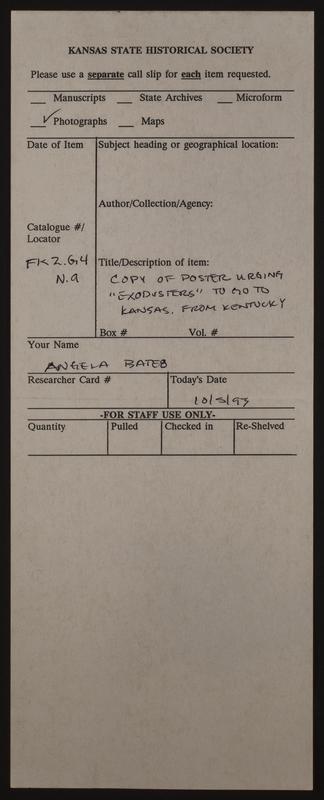 KANSAS STATE HISTORICAL SOCIETY
Please use a separate call slip for each item requested.
__ Manuscripts __ State Archives __ Microform
✓ Photographs __ Maps
Date of Item
Subject heading or geographical location:
Author/Collection/Agency:
Catalogue #/
Locator
FK2.G4
N.9
Title/Description of item:
COPY OF POSTER URGING
"EXODUSTERS" TO GO TO
KANSAS. FROM KENTUCKY
Box # Vol. #
Your Name
ANGELA BATES
Researcher Card #
Today's Date
10/5/93
-FOR STAFF USE ONLY-
Quantity Pulled Checked in Re-Shelved